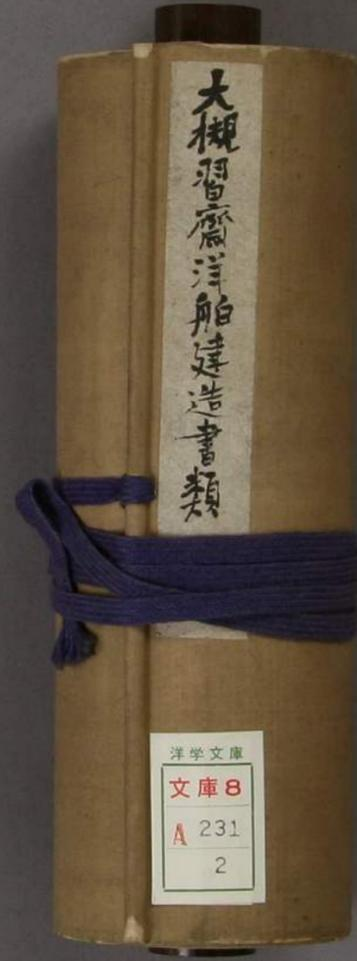 大槻習齋洋舶建造書類
洋学文庫
文庫8
A 231
2